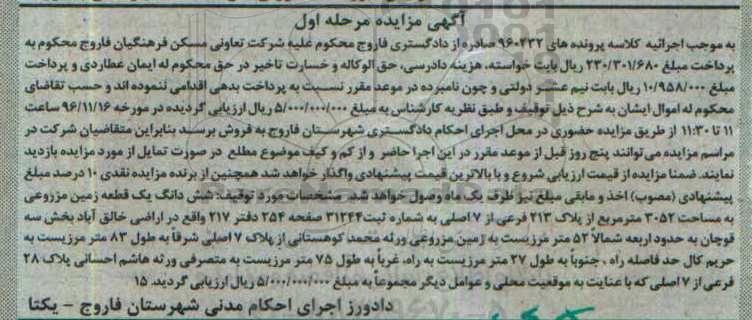 آگهی مزایده مرحله اول
به موجب اجرائیه کلاسه پرونده های ۹۶۰۴۳۲ صادره از دادگستری فاروج محکوم علیه شرکت تعاونی مسکن فرهنگیان فاروج محکوم به
پرداخت مبلغ ۲۳۰/۳۰۱/۶۸۰ ریال بابت خواسته، هزینه دادرسی، حق الوکاله و خسارت تاخیر در حق محکوم له ایمان عطاردی و پرداخت
مبلغ ۱۰/۹۵۸/۰۰۰ ریال بابت نیم عشر دولتی و چون نامبرده در موعد مقرر نسبت به پرداخت بدهی اقدامی ننموده اند و حسب تقاضای
محکوم له اموال ایشان به شرح ذیل توقیف و طبق نظریه کارشناس به مبلغ ۵/۰۰۰/۰۰۰/۰۰۰ ریال ارزیابی گردیده در مورخه ۹۶/۱۱/۱۶ ساعت
۱۱ تا ۱۱:۳۰ از طریق مزایده حضوری در محل اجرای احکام دادگستری شهرستان فاروج به فروش برسد بنابراین متقاضیان شرکت در
مراسم مزایده می توانند پنج روز قبل از موعد مقرر در این اجرا حاضر و از کم و کیف موضوع مطلع در صورت تمایل از مورد مزایده بازدید
نمایند. ضمنا مزایده از قیمت ارزیابی شروع و با بالاترین قیمت پیشنهادی واگذار خواهد شد همچنین از برنده مزایده نقدی ۱۰ درصد مبلغ
پیشنهادی (مصوب) اخذ و مابقی مبلغ نیز ظرف یک ماه وصول خواهد شد. مشخصات مورد توقیف: شش دانگ یک قطعه زمین مزروعی
به مساحت ۳۰۵۲ مترمربع از پلاک ۲۱۳ فرعی از ۷ اصلی به شماره ثبت ۳۱۲۴۴ صفحه ۲۵۴ دفتر ۲۱۷ واقع در اراضی خالق آباد بخش سه
قوچان به حدود اربعه شمالا ۵۲ متر مرزیست به زمین مزروعی ورثه محمد کوهستانی از پلاک ۷ اصلی شرقا به طول ۸۳ متر مرزیست به
حریم کال حد فاصله راه، جنوبا به طول ۲۷ متر مرزیست به راه، غربا به طول ۷۵ متر مرزیست به متصرفی ورثه هاشم احسانی پلاک ۲۸
فرعی از ۷ اصلی که با عنایت به موقعیت محلی و عوامل دیگر مجموعا به مبلغ ۵/۰۰۰/۰۰۰/۰۰۰ ریال ارزیابی گردید. ۱۵
دادورز اجرای احکام مدنی شهرستان فاروج - یکتا